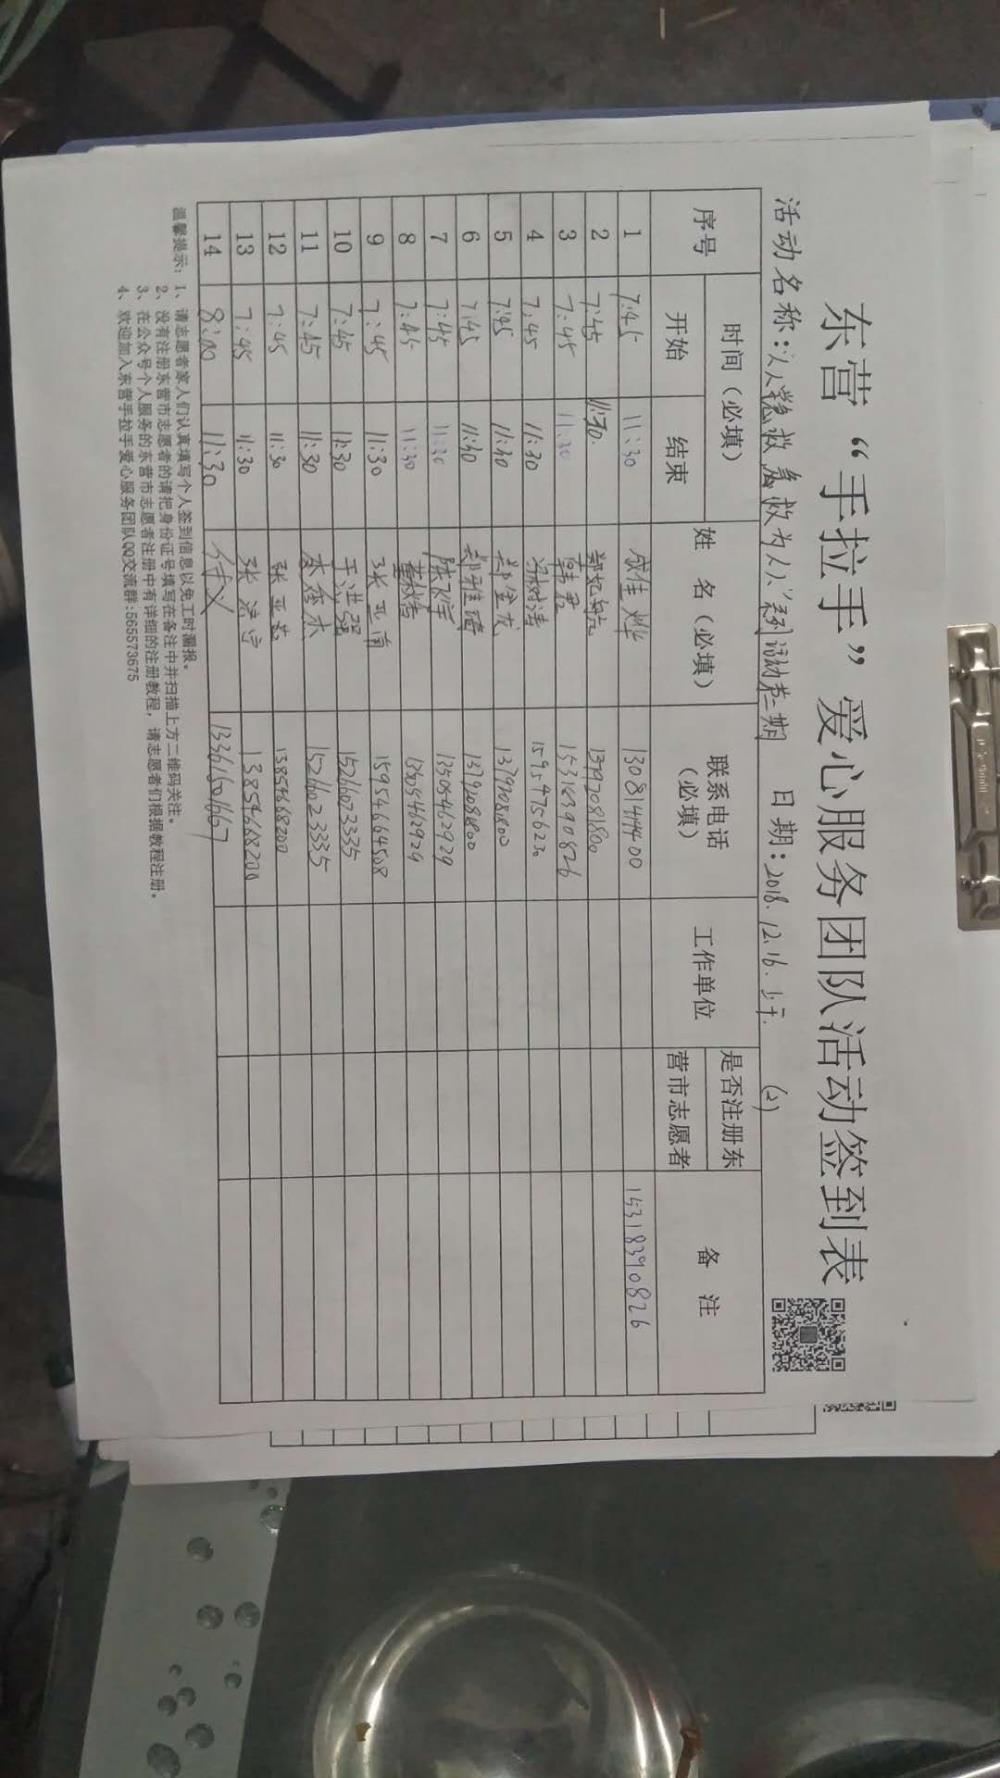 东营“手拉手”爱心服务团队活动签到表
活动名称：“人人学急救 急救为人人”系列活动第二期 日期：2018.12.16.上午. (2)
序号 时间（必填） 姓 名（必填） 联系电话（必填） 工作单位 是否注册东营市志愿者 备 注
开始 结束
1 7:45 11:30 成佳烨 13081414400 15318390826
2 7:45 11:30 郭妃航 13792081800
3 7:45 11:30 韩君 15318390826
4 7:45 11:30 15954756230
5 7:45 11:30 13792081800
6 7:45 11:30 郑雅琦 13792081800
7 7:45 11:30 陈飞宇 13505462929
8 7:45 11:30 13505462929
9 7:45 11:30 张亚南 15954664508
10 7:45 11:30 王洪强 15266023335
11 7:45 11:30 李杏木 15266023335
12 7:45 11:30 张亚茹 13854668200
13 7:45 11:30 张洪宇 13854668200
14 8:00 11:30 付义 13361601667
温馨提示：1、请志愿者家人们认真填写个人签到信息以免工时漏报。
2、没有注册东营市志愿者的请把身份证号填写在备注中并扫描上方二维码关注。
3、在公众号个人服务的东营市志愿者注册中有详细的注册教程，请志愿者们根据教程注册。
4、欢迎加入东营手拉手爱心服务团队QQ交流群:565573675